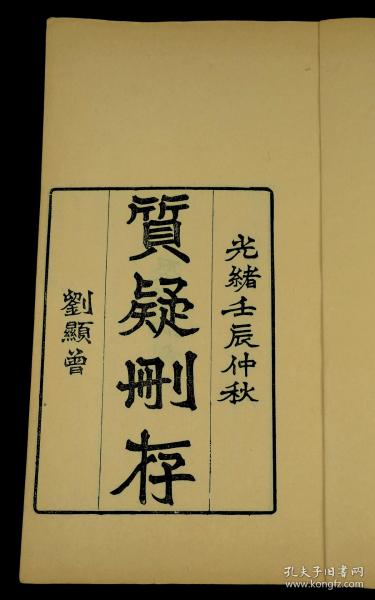 光緒壬辰仲秋
質疑刪存
劉顯曾
孔夫子旧书网
www.kongfz.com